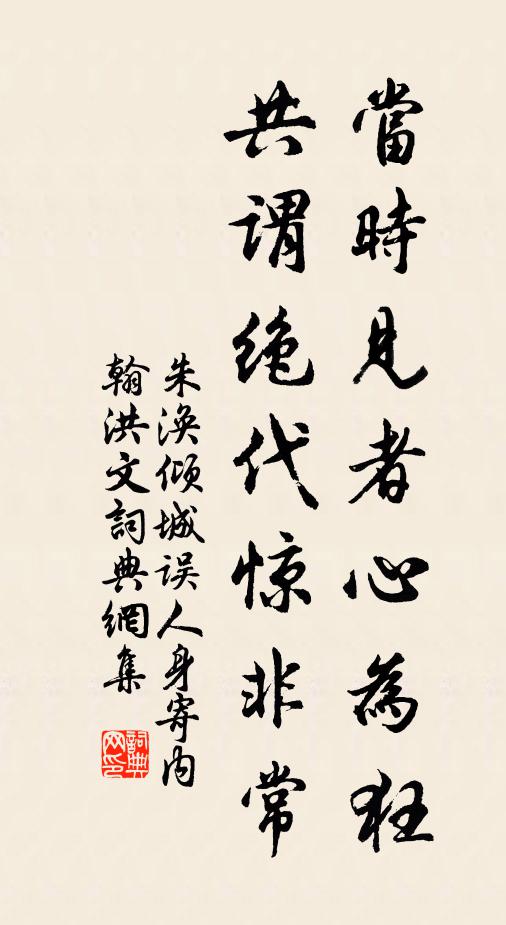 當時見者心為狂
共謂絶代惊非常
朱涣傾城误人身寄内
翰洪文詞典網集
詞典
网印